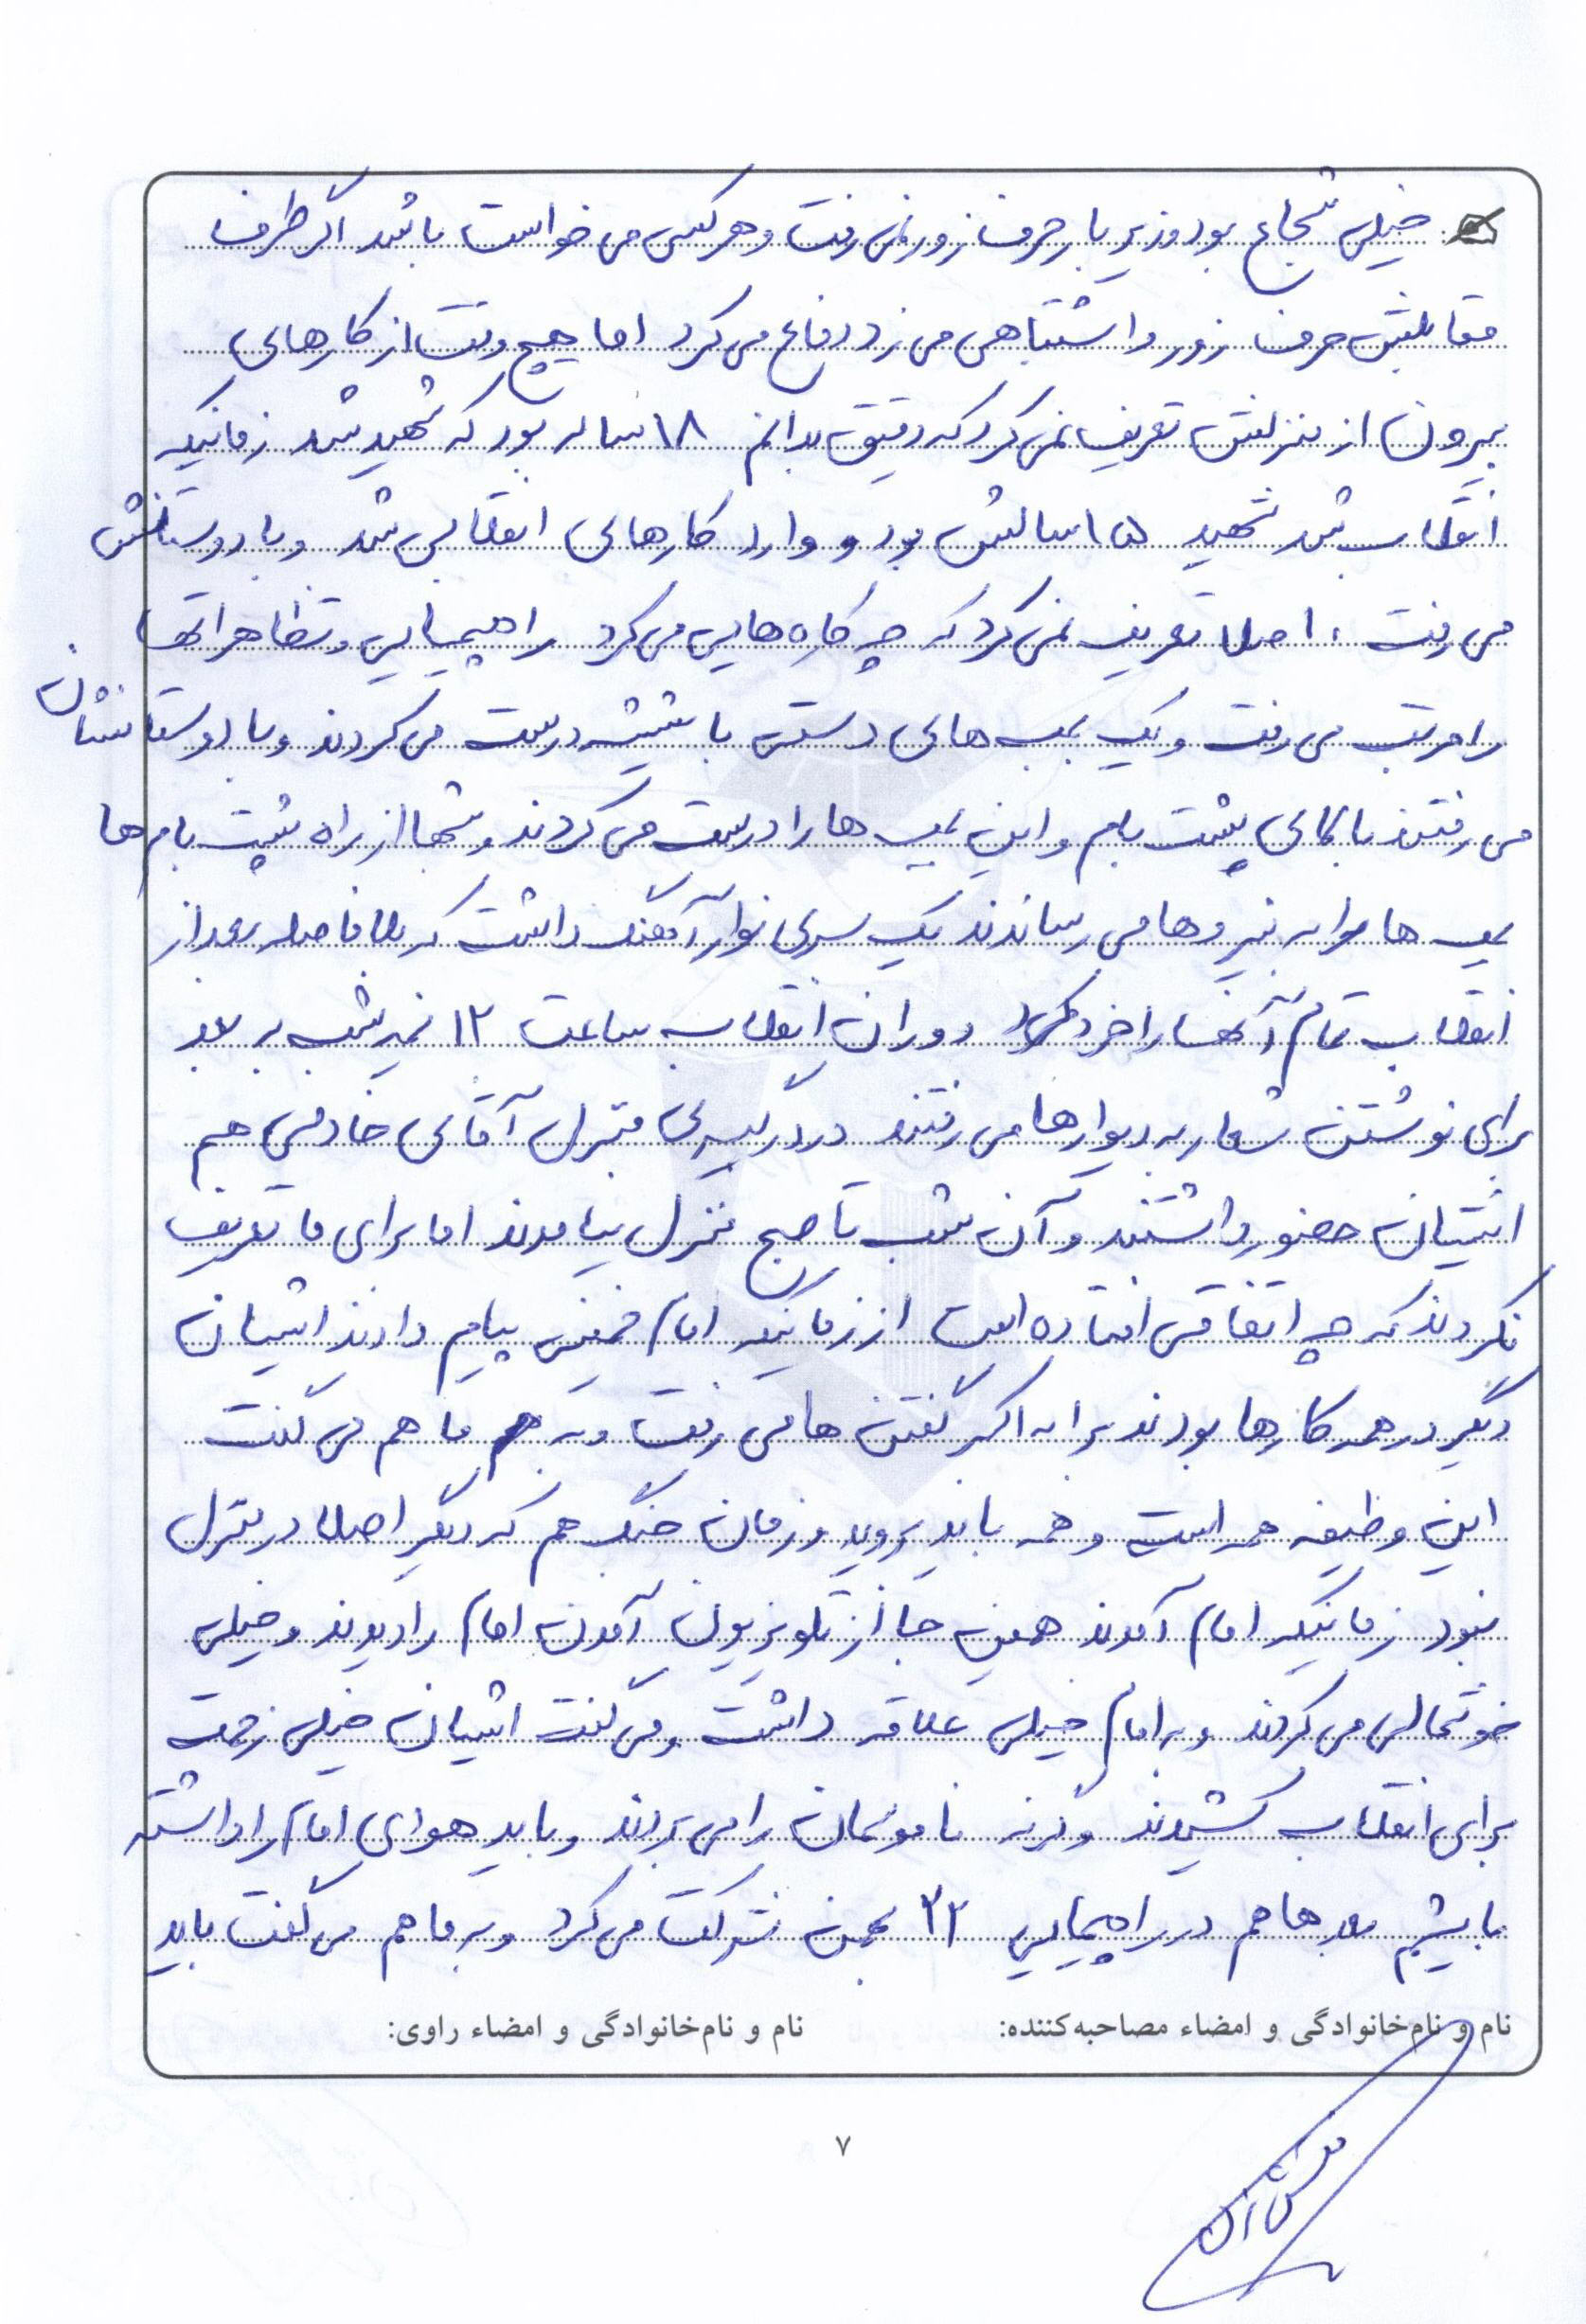 خیلی شجاع بود و زیر بار حرف زور نمی رفت و هر کسی می خواست باشد اگر طرف
مقابلش حرف زور و اشتباهی می زد دفاع می کرد اما هیچ وقت از کارهای
بیرون از منزلش تعریف نمی کرد که دقیق بدانم ۱۸ ساله بود که شهید شد زمانیکه
انقلاب شد شهید ۱۵ سالش بود و وارد کارهای انقلابی شد و با دوستانش
می رفت، اصلا تعریف نمی کرد که چه کاره هایی می کرد راهپیمایی و تظاهراتها
را مرتب می رفت و یک بمب های دستی با شیشه درست می کردند و با دوستانشان
می رفتند بالای پشت بام و این بمب ها را درست می کردند و شبها از راه پشت بام ها
بمب ها را به نیروها می رساندند یک سری نوار آهنگ داشت که بلافاصله بعد از
انقلاب تمام آنها را خرد کرد دوران انقلاب ساعت ۱۲ نیمه شب به بعد
برای نوشتن شعار به دیوارها می رفتند در درگیری منزل آقای خادمی هم
ایشان حضور داشتند و آن شب تا صبح منزل نیامدند اما برای ما تعریف
نکردند که چه اتفاقی افتاده است از زمانیکه امام خمینی پیام دادند ایشان
دیگر در همه کارها بودند برا اله اکبر گفتن ها می رفت و به ما هم می گفت
این وظیفه همه است و همه باید بروید و زمان جنگ هم که دیگر اصلا در منزل
نبود زمانیکه امام آمدند همین جا از تلویزیون آمدن امام را دیدند و خیلی
خوشحالی می کردند و به امام خیلی علاقه داشت و می گفت ایشان خیلی زحمت
برای انقلاب کشیدند وگرنه ناموسمان را می بردند و باید هوای امام را داشته
باشیم بعدها هم در راهپیمایی ۲۲ بهمن شرکت می کرد و به ما هم می گفت باید
نام و نام‌خانوادگی و امضاء مصاحبه‌کننده: نام و نام‌خانوادگی و امضاء راوی:
۷